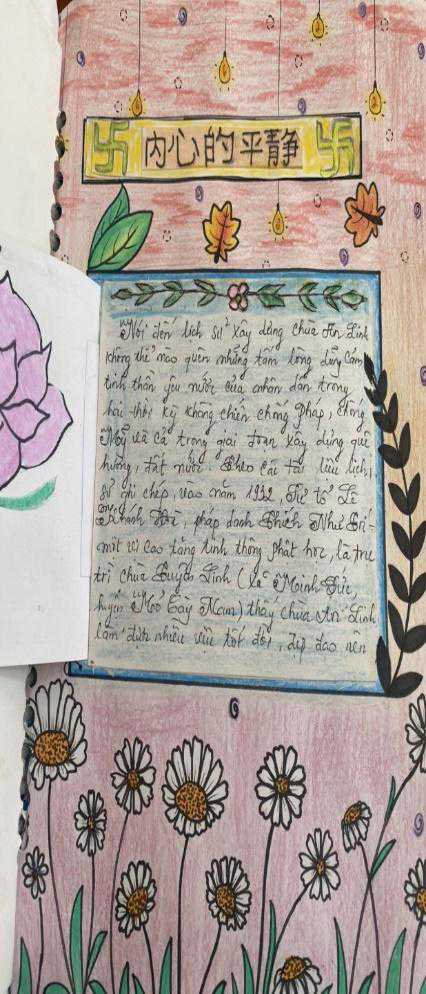 卐 内心的平静 卐
Nói đến lịch sử xây dựng chùa An Linh
không thể nào quên những tấm lòng dũng cảm
tinh thần yêu nước của nhân dân trong
hai thời kỳ kháng chiến chống Pháp, chống
Mỹ và cả trong giai đoạn xây dựng quê
hương, đất nước. Theo các tài liệu lịch
sử ghi chép, vào năm 1932, Sư tổ Lê
Khánh Hòa, pháp danh Thích Như Trí -
một vị cao tăng tinh thông phật học, là trụ
trì chùa Tuyên Linh (xã Minh Đức,
huyện Mỏ Cày Nam) thấy chùa An Linh
làm được nhiều việc tốt đời, đẹp đạo nên